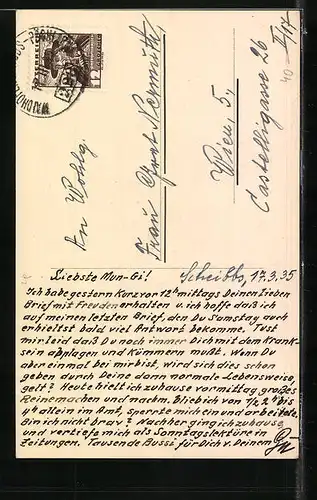 An Wohlg.
Frau Gust Nermuth
Wien, 5,
Castelligasse 26
I/17
40
ÖSTERREICH
12
Scheibbs, 17.3.35
Liebste Mun-Gi!
Ich habe gestern kurz vor 12h mittags Deinen lieben
Brief mit Freuden erhalten u. ich hoffe daß ich
auf meinen letzten Brief, den Du Samstag auch
erhieltst bald viel Antwort bekomme. Tust
mir leid daß Du noch immer Dich mit dem Krank-
sein abplagen und kümmern mußt. Wenn Du
aber einmal bei mir bist, wird sich dies schon
geben durch Deine dann normale Lebensweise,
gelt? Heute hielt ich zuhause vormittag großes
Reinemachen und nachm. blieb ich von 1/2 2h bis
4h allein im Amt, sperrte mich ein und arbeitete.
Bin ich nicht brav? Nachher ging ich zuhause
und vertiefe mich als Sonntagslektüre in
Zeitungen. Tausende Bussi für Dich v. Deinem